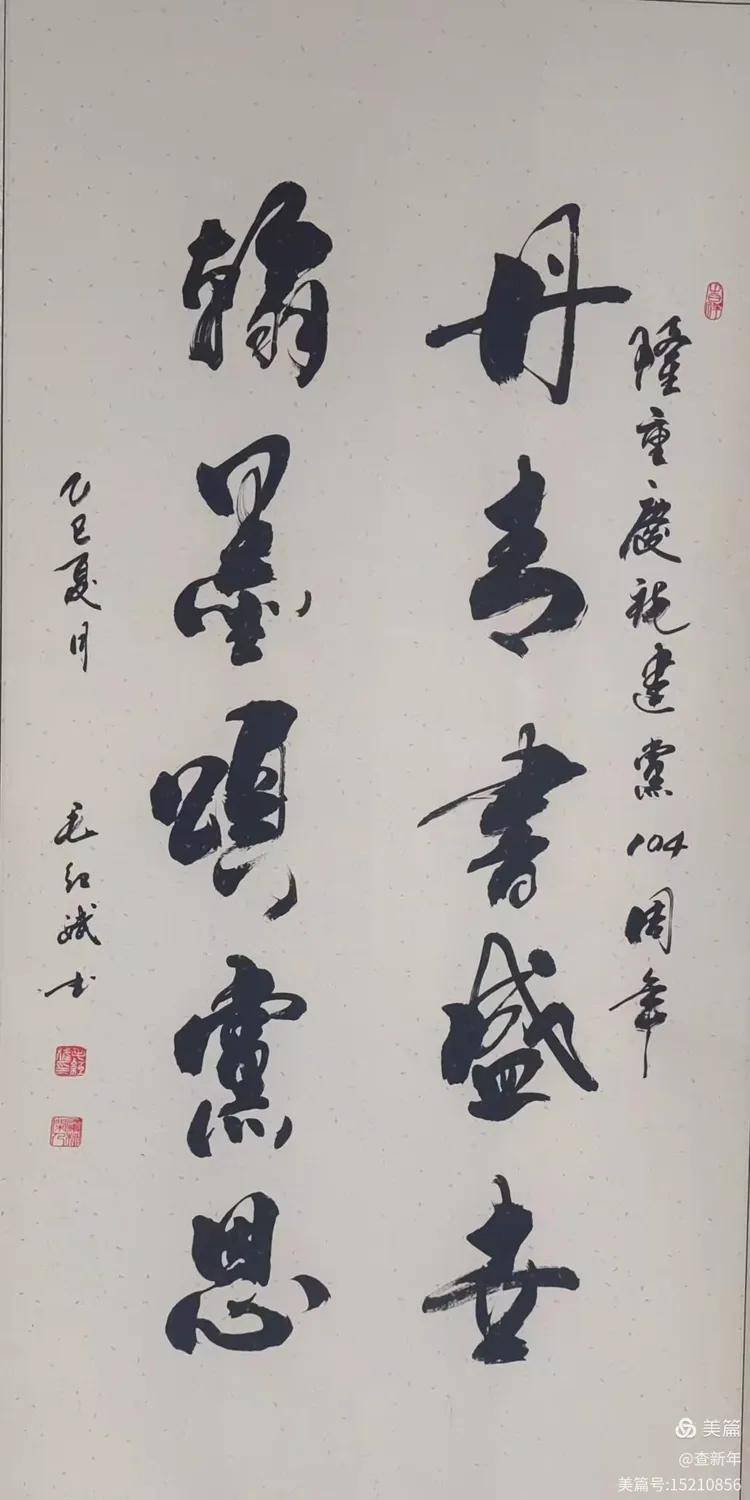 隆重慶祝建黨104周年
丹青書盛世
翰墨頌黨恩
乙巳夏月
毛紅斌书
美篇
@查新年
美篇号:15210856